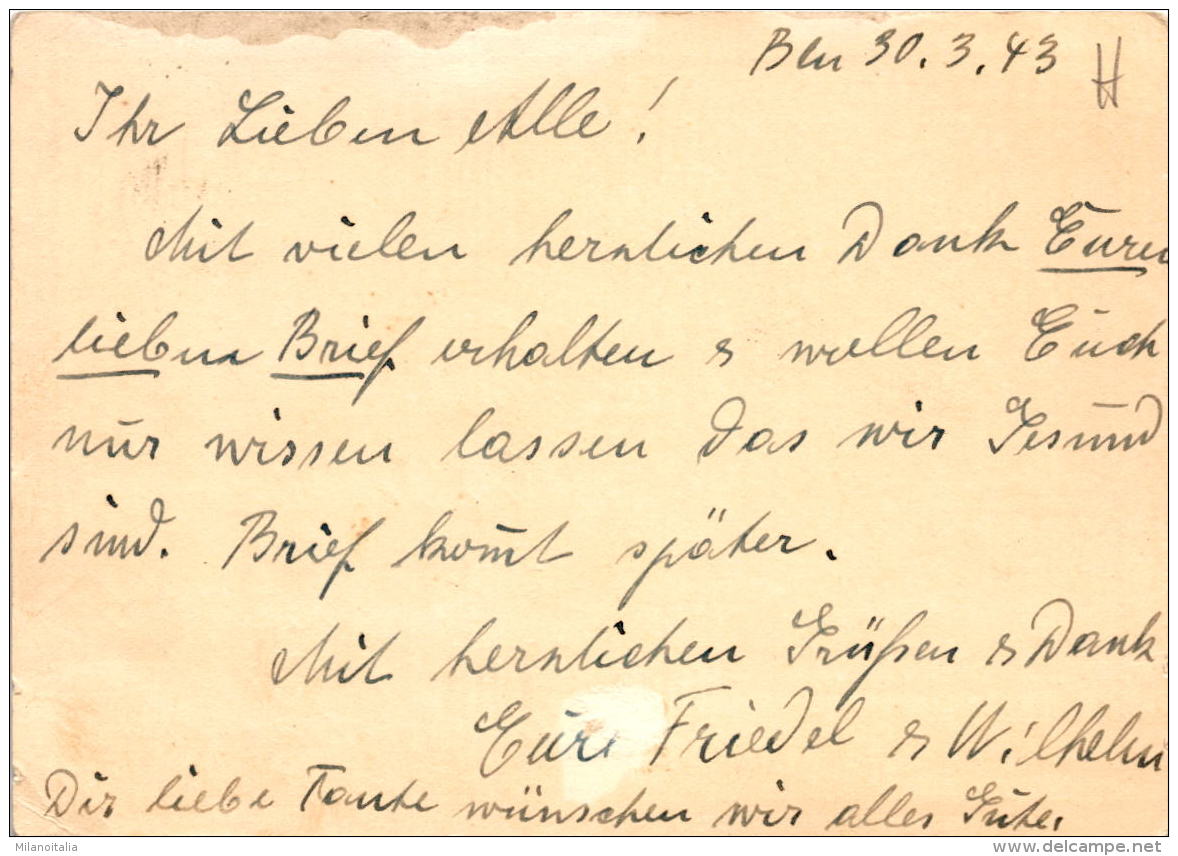 Bln 30.3.43 H
Ihr Lieben Alle!
Mit vielen herzlichen Dank Euren
lieben Brief erhalten & wollen Euch
nur wissen lassen das wir Gesund
sind. Brief kom̄t später.
Mit herzlichen Grüßen & Dank
Eure Friedel & Wilhelm
Dir liebe Tante wünschen wir alles Gute.
Milanoitalia
www.delcampe.net